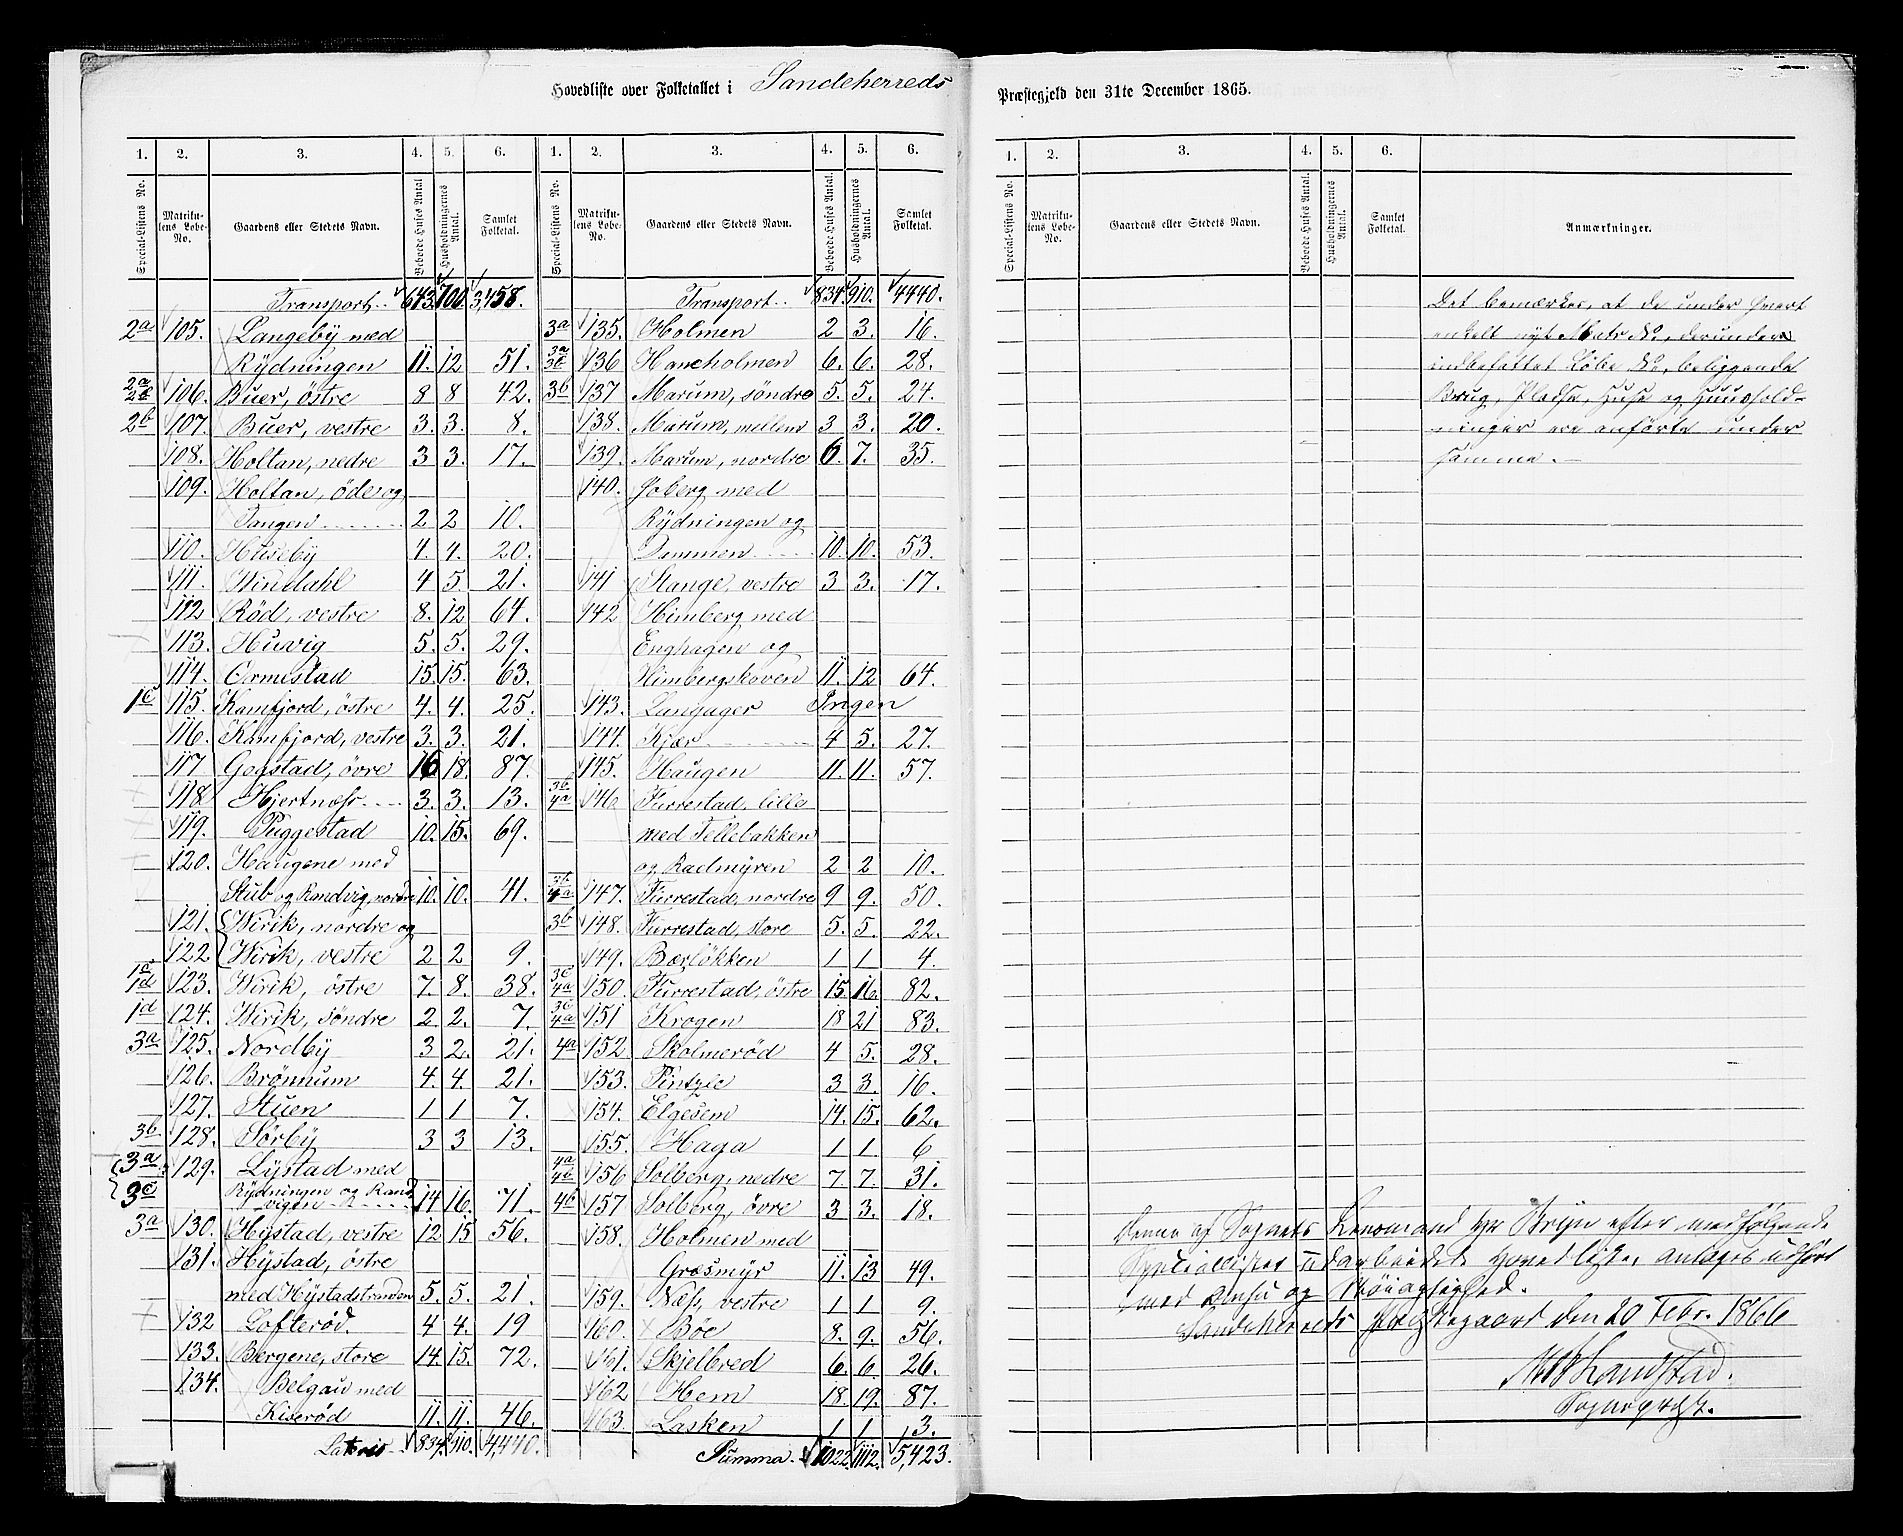 Hovedliste over Folketallet i Sandeherreds Præstegjeld den 31te December 1865.
1. 2. 3. 4. 5. 6. 1. 2. 3. 4. 5. 6.
Special-Listens No. Matrikulens Løbe-No. Gaardens eller Stedets Navn. Beboede Huses Antal Husholdningernes Antal. Samlet Folketal. Special-Listens No. Matrikulens Løbe-No. Gaardens eller Stedets Navn. Beboede Huses Antal. Husholdningernes Antal. Samlet Folketal.
Transport.. 643. 700. 3,458.
2a 105. Langeby med
Rydningen 11. 12 51.
2a 2b 106. Buer, östre 8 8 42.
2b 107. Buer, vestre 3. 3. 8.
108. Holtan, nedre 3 3. 17.
109. Holtan, öde og
Tangen 2 2 10.
110. Huseby 4. 4. 20.
111. Windahl 4 5 21.
112 Röd, vestre 8. 12 64.
113. Husvig 5. 5. 29.
114. Ormestad 15. 15. 63.
1c 115. Kamfjord, östre 4. 4. 25.
116. Kamfjord, vestre 3. 3. 21.
117 Gogstad, övre 16 18. 87.
118 Hjertnæss 3. 3. 13.
119. Puggestad 10. 15. 69.
120. Haugene med
Stub og Randvig, nordre 10. 10. 41.
121. Wirik, nordre og
122 Wirik, vestre 2 2 9.
1c 1d 123. Wirik, östre 7. 8. 38.
1d 124. Wirik, söndre 2 2. 7.
3a 125. Nordby 3 2. 21.
126. Brönnum 4. 4. 21.
127. Stuen 1 1 7.
3b 128. Sörby 3 3 13.
3a 129. Lystad med
3c Rydningen og Randvigen 14 16. 71.
3a 130. Hystad, vestre 12 15 56.
131. Hystad, östre
med Hystadstranden 5. 5. 21.
132 Lofteröd. 4 4. 19
133. Bergene, store 14. 15. 72.
134. Belgau med
Kiseröd 11. 11. 46.
Lateris 834. 910. 4,440.
Transport.. 834. 910. 4440.
3a 135. Holmen 2 3. 16.
3a 3b 136 Haneholmen 6. 6. 28.
3b 137 Marum, söndre 5. 5. 24.
138. Marum, mellem 3 3. 20.
139. Marum, nordre 6. 7. 35.
140. Joberg med
Rydningen og
Dammen 10. 10. 53.
141 Stange, vestre 3 3. 17.
142 Himberg med
Enghagen og
Himbergskoven 11. 12 64.
143. Langager Ingen
144. Kjær 4 5. 27.
145. Haugen 11. 11. 57.
3b 4a 146 Furrestad, lille
med Fellebakken
og Radmyren 2 2 10.
3b 4a 147. Furrestad, nordre 9 9. 50.
3b 148. Furrestad, store 5. 5. 22.
149. Bærlökken 1 1 4.
3c 4a 150. Furrestad, östre 15. 16. 82.
3c 4a 151 Krogen 18 21 83.
4a 152 Skolmeröd 4 5. 28.
153. Pintzle 3 3. 16.
154. Elgesem 14. 15. 62.
155. Haga 1. 1. 6
4a 4b 156 Solberg, nedre 7. 7. 31.
4b 157 Solberg, övre 3 3. 18.
158. Holmen med
Græsmyr 11. 13 49.
159. Næss, vestre 1 1 9.
160. Böe 8. 9. 56.
161. Skjelbred 6. 6. 26.
162 Hem 18. 19. 87.
163. Lasken 1 1. 3.
Summa. 1022. 1112. 5,423.
1. 2. 3. 4. 5. 6.
Special-Listens No. Matrikulens Løbe-No. Gaardens eller Stedets Navn. Beboede Huses Antal. Husholdningernes Antal. Samlet Folketal. Anmærkninger.
Det bemærkes, at de under hvert
enkelt nyt Matr. No., derunder
indbefattet Löbe No, beliggende
Brug, Pladse, Huse og Huushold-
ninger ere anförte under
samme.
Denne af Sognets Lensmand Hr Bryn efter medfølgende
Speciallister udarbeidede Hovedliste, antages udfört
med Omhu og Nöiagtighed.
Sandeherreds Præstegaard den 20 Febr. 1866
M B Landstad.
Sognepræst.